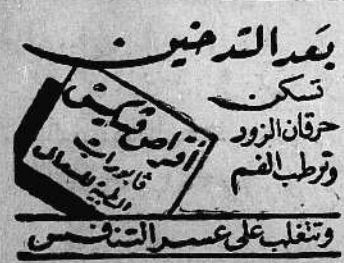 بعد التدخين
تسكن
حرقان الزور
وترطب الفم
أقراص
الطبية للسعال
وتتغلب على عسر التنفس